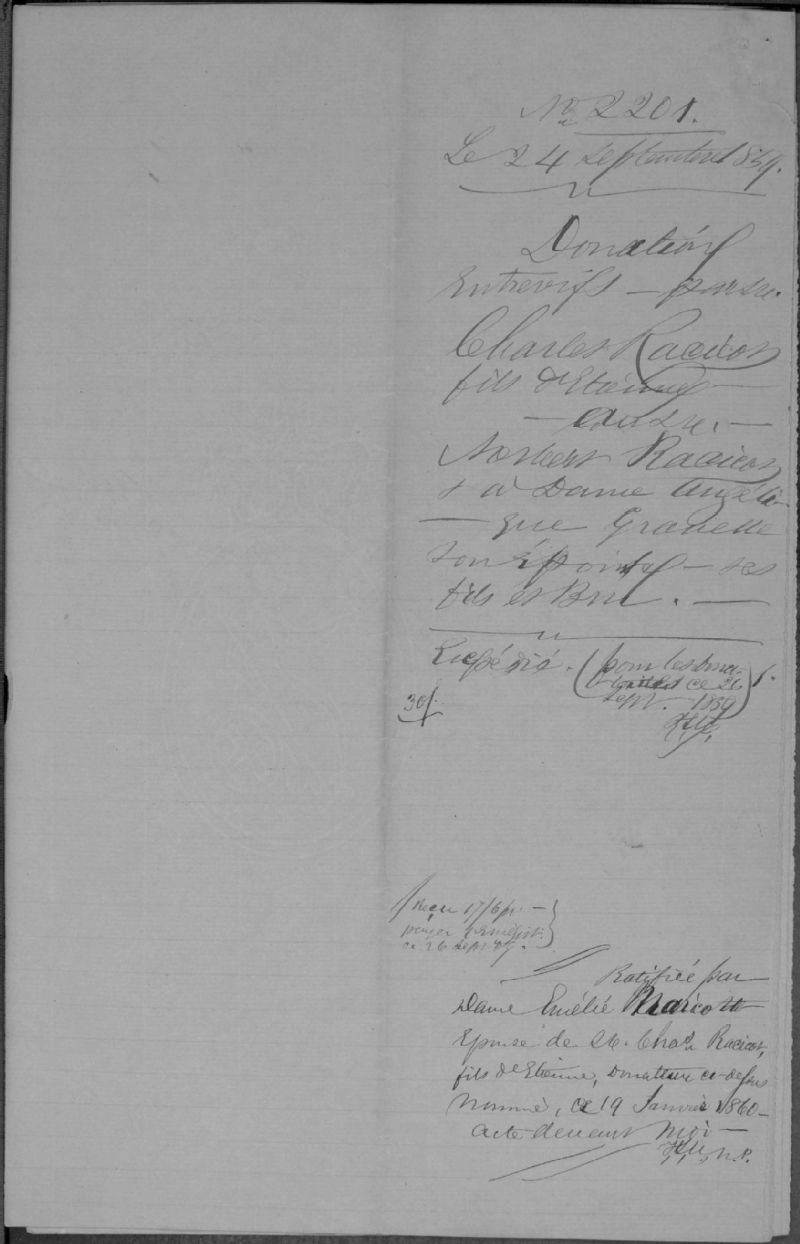 No 2201.
Le 24 Septembre 1859.
Donation
Entrevifs — par sre.
Charles Racicot
fils d'Etienne —
— au sre. —
Norbert Racicot
& à Dame Angéli-
— que Gravelle
son Epouse — ses
fils et Bru. —
Expédié. (pour les
ce 26
Sept. — 1859)
30/.
Recu 17/6 pr. —
payer
ce 26 Sept. 59.
Ratifiée par
Dame Emélie Marcotte
Epouse de Sr. Chas. Racicot,
fils d'Etienne, Donateur ci-dessus
Nommé, ce 19 Janvier 1860 —
acte devant Moi —
N.P.